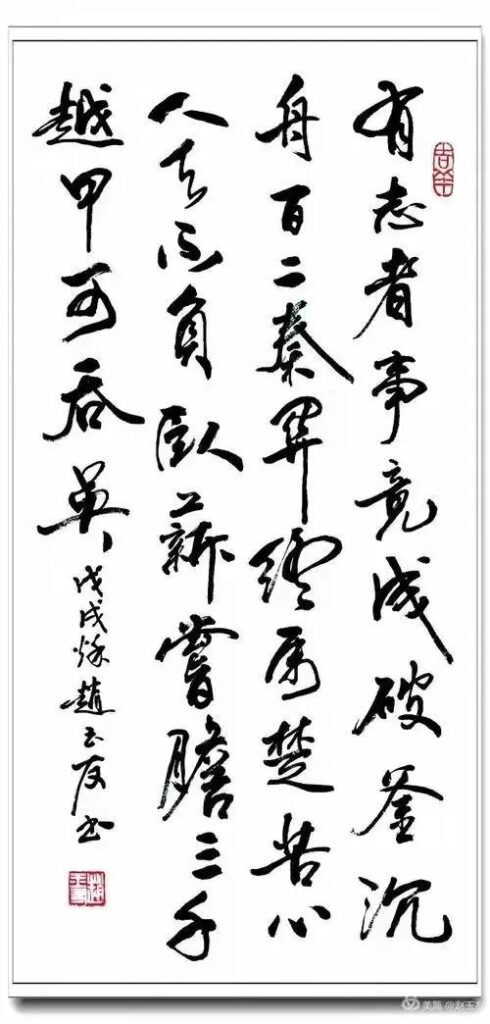 有志者事竟成破釜沉
舟百二秦关终属楚苦心
人天不负卧薪尝胆三千
越甲可吞吴
戊戌秋赵玉友书
美篇 @赵玉友